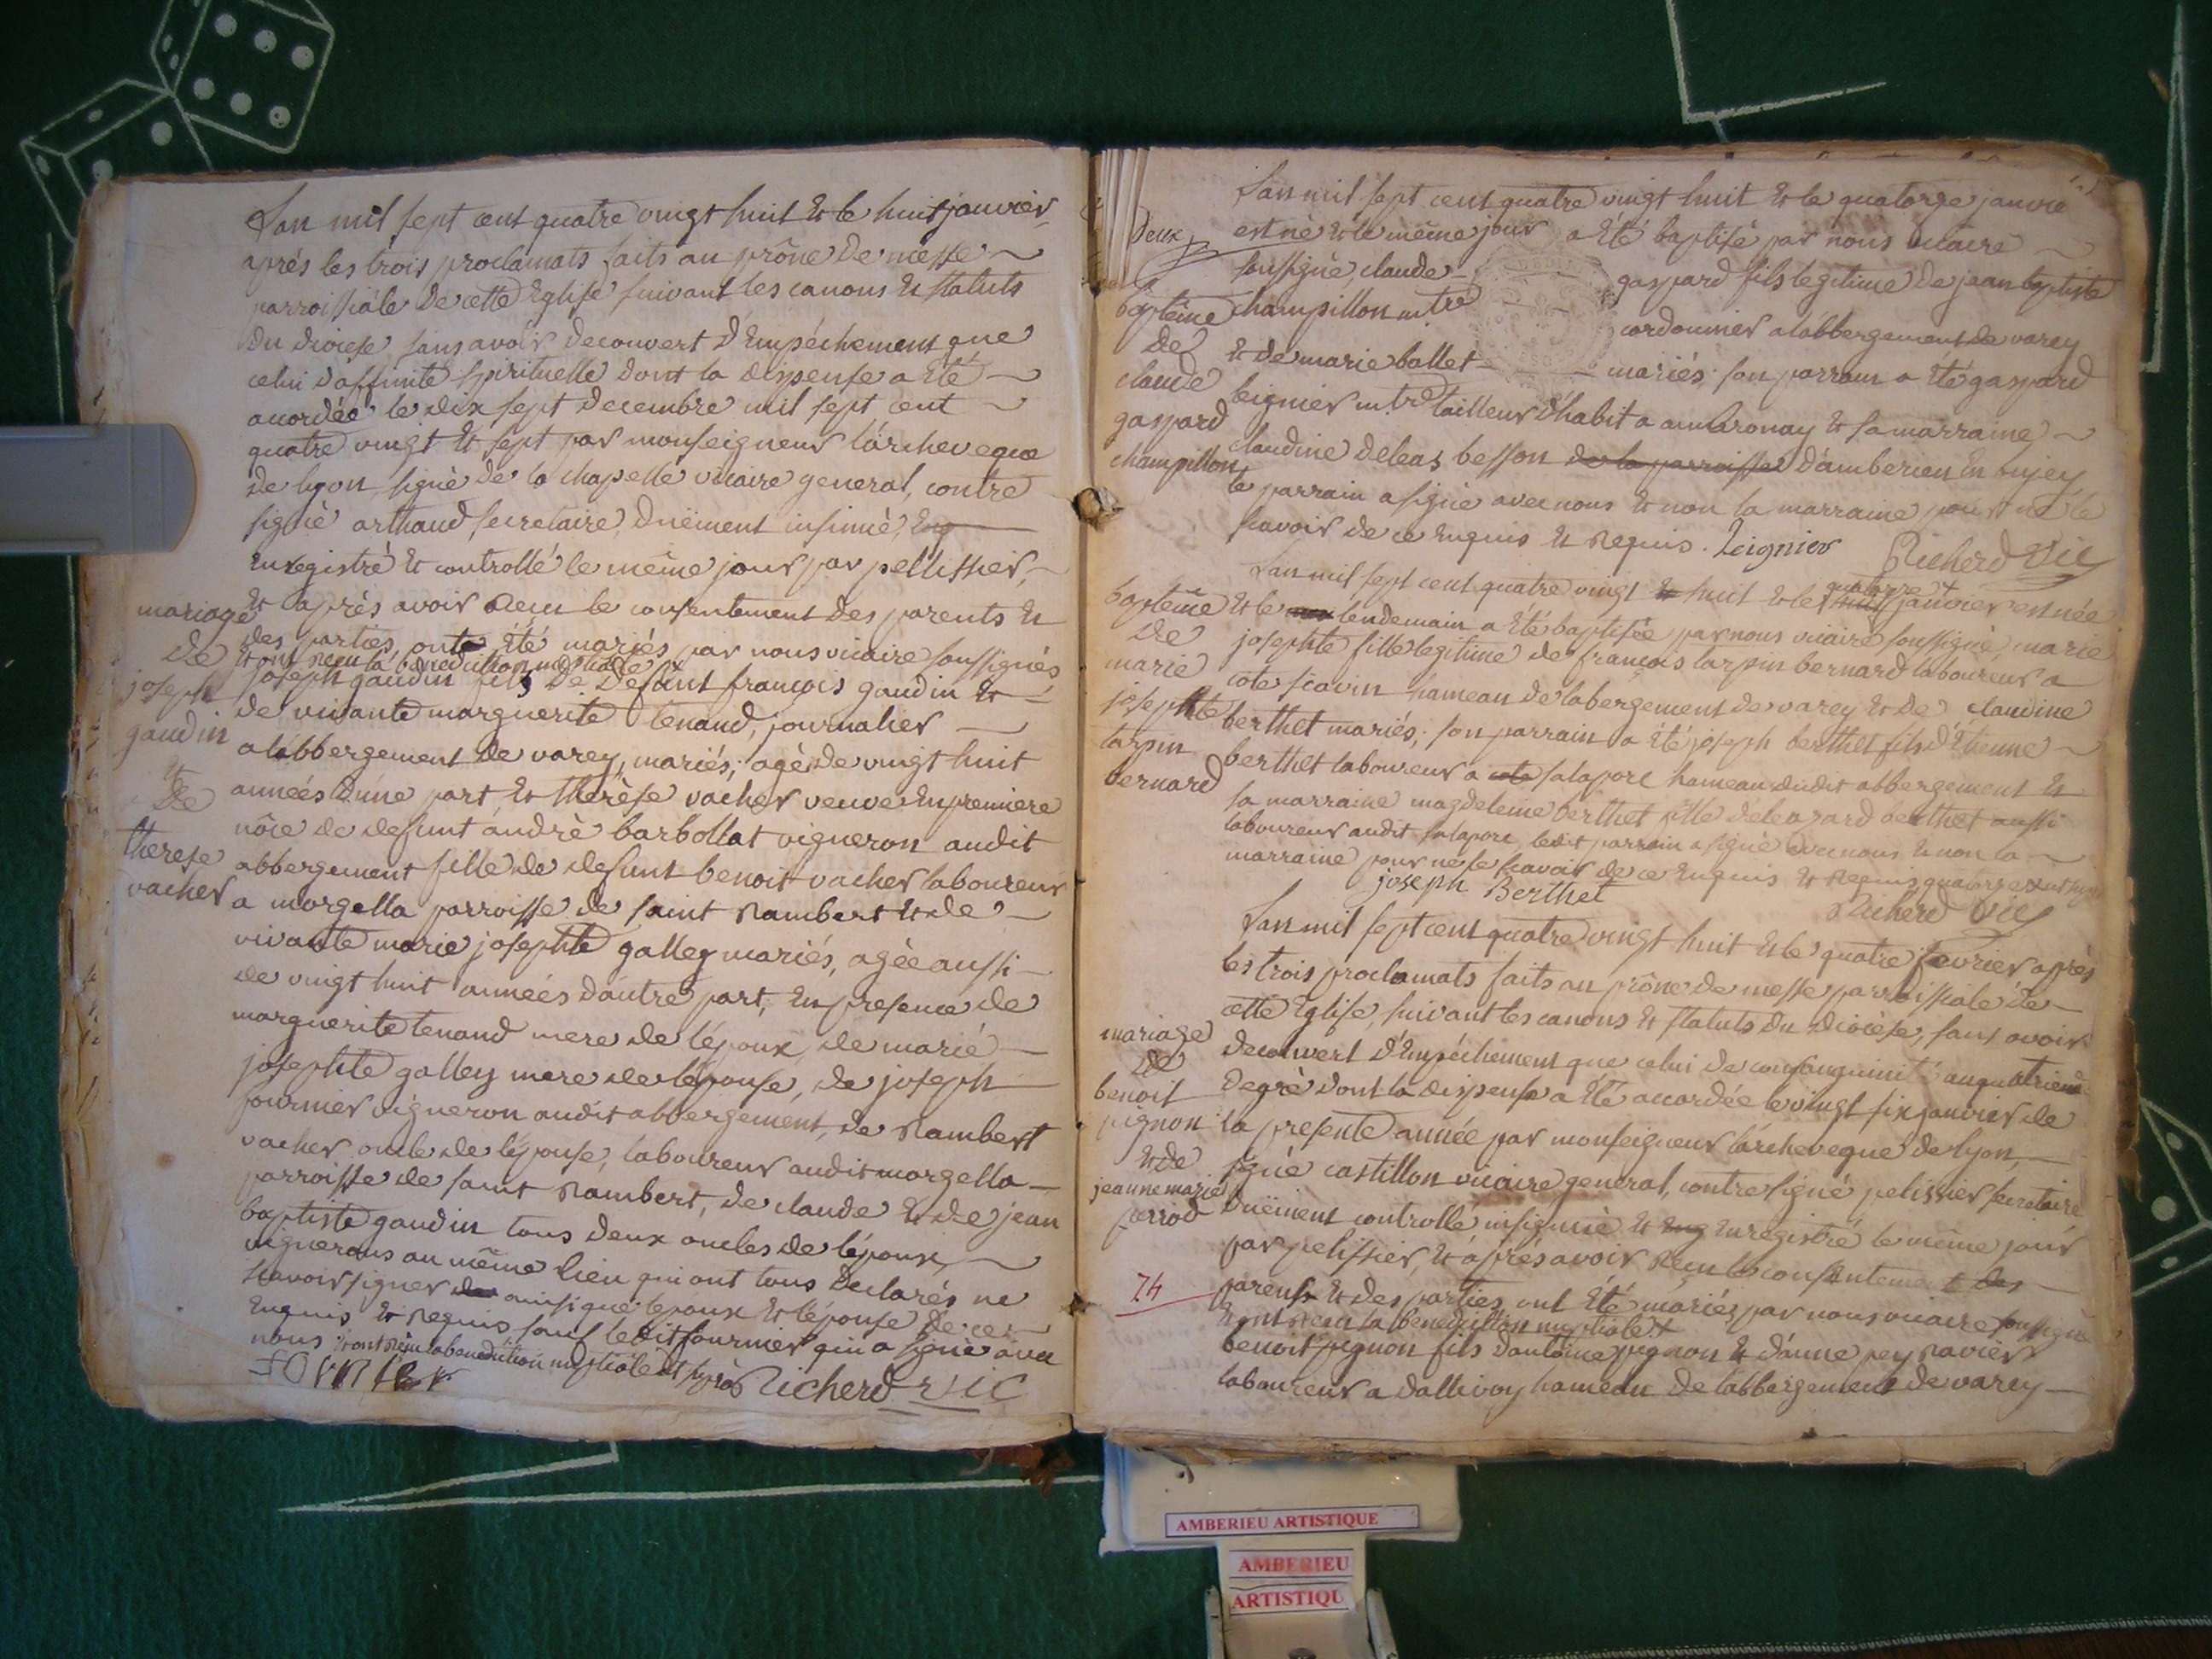 L'an mil sept cent quatre vingt huit et le huit janvier
après les trois proclamats faits au prône de messe
parroissiale de cette Eglise suivant les canons et statuts
du diocese sans avoir decouvert d'Empéchement que
celui d'affinité spirituelle dont la dispense a Eté
acordée le dix sept decembre mil sept cent
quatre vingt et sept par monseigneur l'archeveque
de lyon, signé de la chapelle vicaire general, contre
signé arthaud secretaire, duëment insinué,
Enregistré et controllé le même jour par pelissier,
et après avoir Reçu le consentement des parents et
des parties, ont Eté mariés par nous vicaire soussignés
et ont Reçu la benediction nuptiale
joseph gaudin fils de defunt françois gaudin et
de vivante marguerite tenand, journalier
a labbergement de varey, mariés, agé de vingt huit
années d'une part et therèse vacher veuve En premiere
nôce de defunt andrè barbollat vigneron audit
abbergement fille de defunt benoit vacher laboureur
a morgella parroisse de saint Rambert et de
vivante marie josephte galley mariés, agée aussi
de vingt huit années d'autre part, En presence de
marguerite tenand mere de l'époux, de marie
josephte galley mere de l'épouse, de joseph
fournier vigneron audit abbergement, de Rambert
vacher oncle de l'épouse, laboureur audit morgella
parroisse de saint Rambert, de claude et de jean
baptiste gaudin tous deux oncles de l'époux,
vignerons au même lieu qui ont tous declarés ne
scavoir signer ainsi que l'epoux et l'épouse de ce
Enquis et Requis sauf ledit fournier qui a signé avec
nous et ont Reçu la benediction nuptiale
fournier Richerd vic
mariage
de
joseph
gaudin
et
de
therese
vacher
L'an mil sept cent quatre vingt huit et le quatorze janvier
est né et le même jour a été baptisé par nous vicaire
soussigné, claude gaspard fils legitime de jean baptiste
champillon mtre cordonnier a labbergement de varey
et de marie ballet mariés; son parrain a Eté gaspard
leignier mtre tailleur d'habit a ambronay et sa marraine
claudine deleas besson de la parroisse d'amberieu En bugey
le parrain a signé avec nous et non la marraine pour ne le
scavoir de ce Enquis et Requis. Leignier Richerd Vic
Deux
baptême
de
claude
gaspard
champillon
L'an mil sept cent quatre vingt huit et le quatorze janvier est née
et le lendemain a Eté baptisée par nous vicaire soussigné, marie
josephte fille legitime de françois tarpin bernard laboureur a
cote scavin hameau de labergement de varey et de claudine
berthet mariés; son parrain a été joseph berthet fils d'Etienne
berthet laboureur a salapore hameau dudit abbergement et
sa marraine magdeleine berthet fille deleazard berthet aussi
laboureur audit salapore, ledit parrain a signé avec nous et non la
marraine pour ne le scavoir de ce Enquis et Requis quatorze
joseph Berthet Richerd Vic
baptême
de
marie
josephte
tarpin
bernard
L'an mil sept cent quatre vingt huit et le quatre fevrier après
les trois proclamats faits au prône de messe parroissiale de
cette Eglise, suivant les canons et statuts du diocèse, sans avoir
decouvert d'Empéchement que celui de consanguinité au quatrieme
degré dont la dispense a Eté accordée le vingt six janvier de
la presente année par monseigneur l'archeveque de lyon,
signé castillon vicaire general, contresigné pelissier secretaire
duëment controllé insinué et Enregistré le même jour
par pelissier, et après avoir Reçu le consentement des
parents et des parties ont Eté mariés par nous vicaire soussigné
et ont Reçu la benediction nuptiale
benoit pignon fils d'antoine pignon et d'anne pey ravier
laboureur a dallivoy hameau de labbergement de varey
mariage
de
benoit
pignon
et de
jeanne marie
perrod
74
AMBERIEU ARTISTIQUE
AMBERIEU
ARTISTIQU